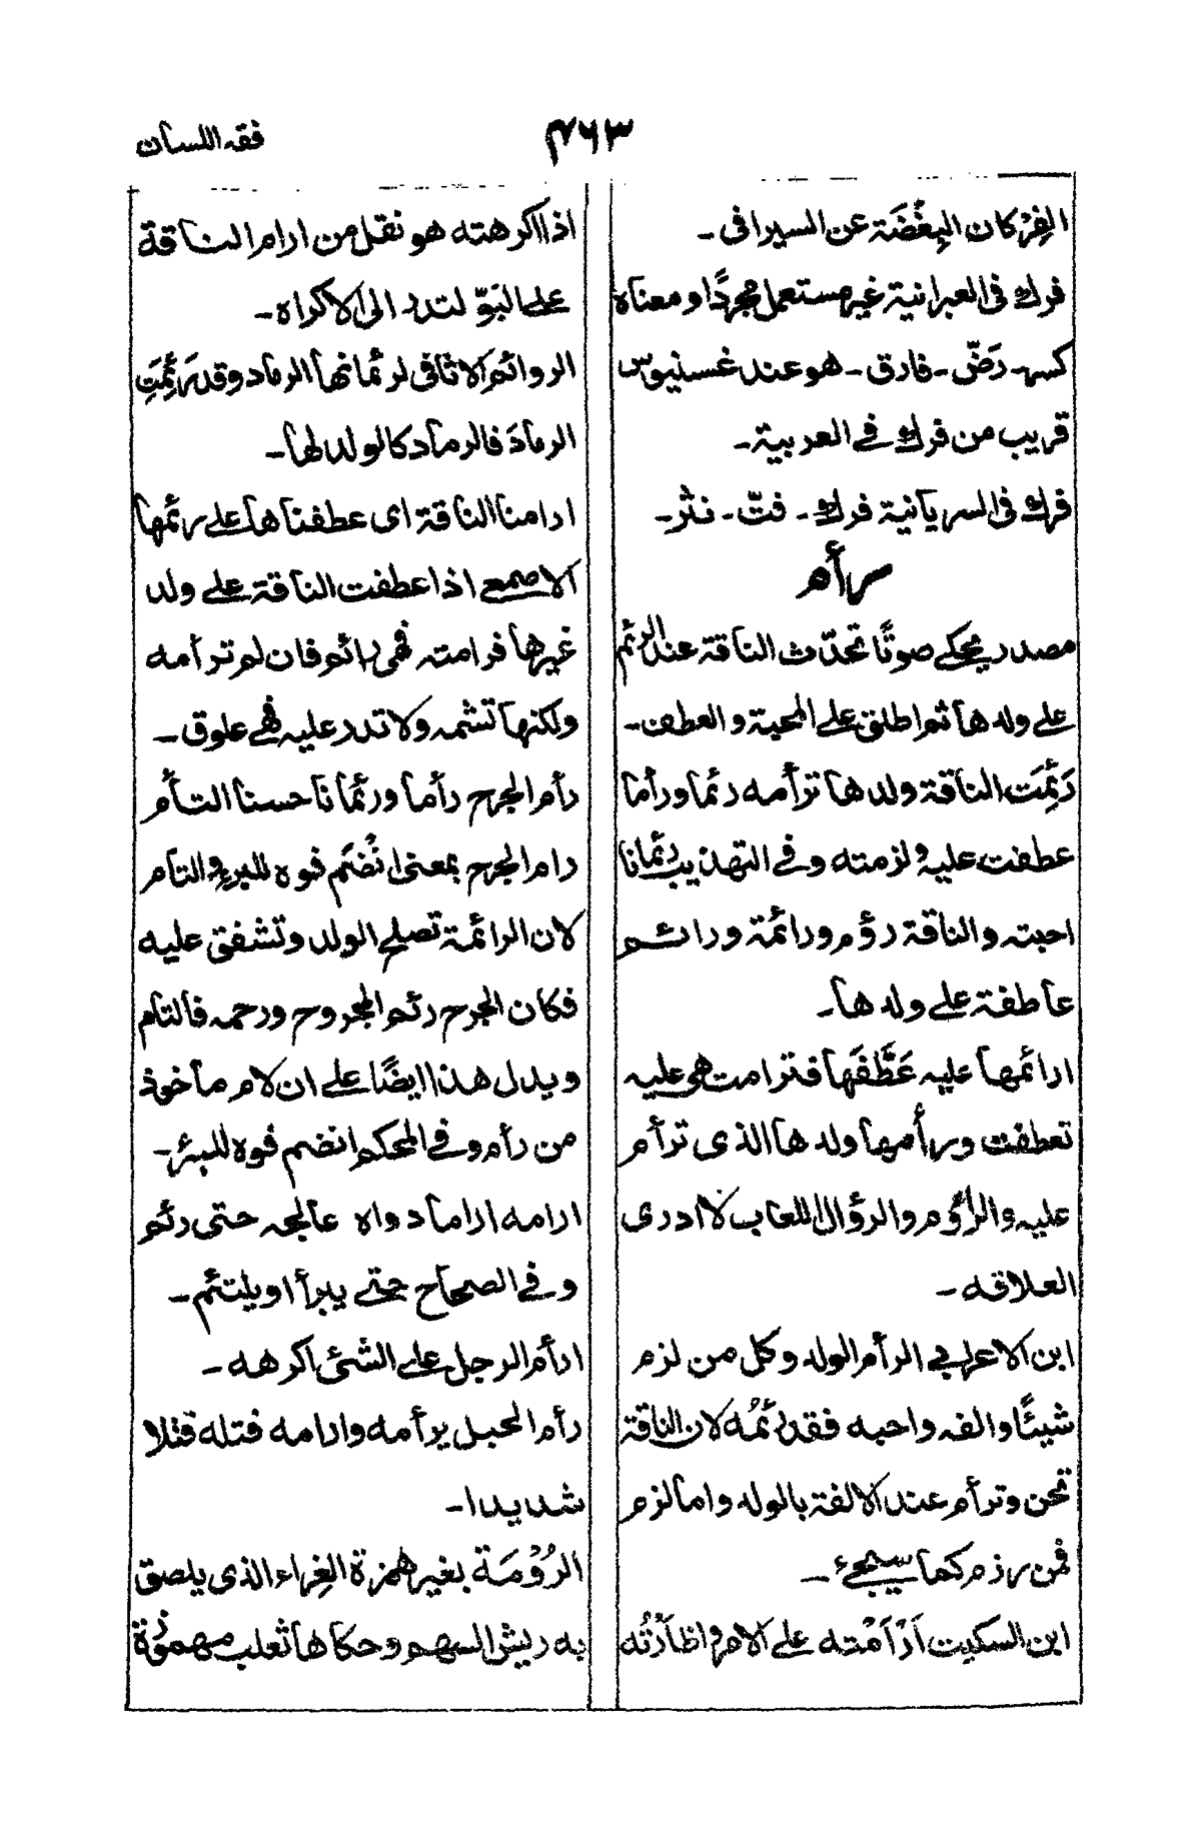 فقہ اللسان
۴۶۳
الفِرْكان البِغْضَة عن السيرافى ـ
فرك فى العبرانية غير مستعمل مجردًا ومعناه
كسر ـ رَضّ ـ فارق ـ هو عند غسنيوس
قريب من فرك فى العربية ـ
فرك فى السريانية فرك ـ فتّ ـ نثر ـ
رأم
مصدر يحكى صوتًا تحدّث الناقة عند الرئم
على ولدها ثم اطلق على المحبة والعطف ـ
رَئِمَت الناقة ولدها ترأمه رئما ورأما
عطفت عليه ولزمته وفى التهذيب رئمانا
احبته والناقة رؤم ورائمة ورائم
عاطفة على ولدها ـ
ارائمها عليه عَطَّفَها فترامت هى عليه
تعطفت ورأمها ولدها الذى ترأم
عليه والرأوُم والرؤال اللعاب لا ادرى
العلاقه ـ
ابن الاعرابى الرأم الولد وكل من لزم
شيئًا والفه واحبه فقد رئمُه لان الناقة
تحن وترأم عند الالفة بالولد واما لزم
فمن رزم كما سيجئ ـ
ابن السكيت اَرْأمْته على الامر واظأرْتُه
اذا اكرهته هو نقل من ارام الناقة
على البَوّ لتدر الى الاكراه ـ
الروائم الاثافى لرئمانها الرماد وقد رَئِمَتِ
الرمادَ فالرماد كالولد لها ـ
ارامنا الناقة اى عطفناها على رئمها
الاصمعى اذا عطفت الناقة على ولد
غيرها فرامته فهى رائم فان لم ترأمه
ولكنها تشمه ولا تدر عليه فهى علوق ـ
رأم الجرح رأما ورئمانا حسنا التأم
رام الجرح بمعنى انْضَم فوه للبرء والتام
لان الرائمة تصلح الولد وتشفق عليه
فكان الجرح رئم المجروح ورحمه فالتام
ويدل هذا ايضًا على ان لام ماخوذ
من رأم وفى المحكم انضم فوه للبئر ـ
ارامه اراما دواه عالجه حتى رئم
وفى الصحاح حتى يبرأ او يلتئم ـ
ارأم الرجل على الشئ اكرهه ـ
رأم الحبل يرأمه وارامه فتله فتلا
شديدا ـ
الرُوْمَة بغير همزة الغِراء الذى يلصق
به ريش السهم وحكاها ثعلب مهموزة